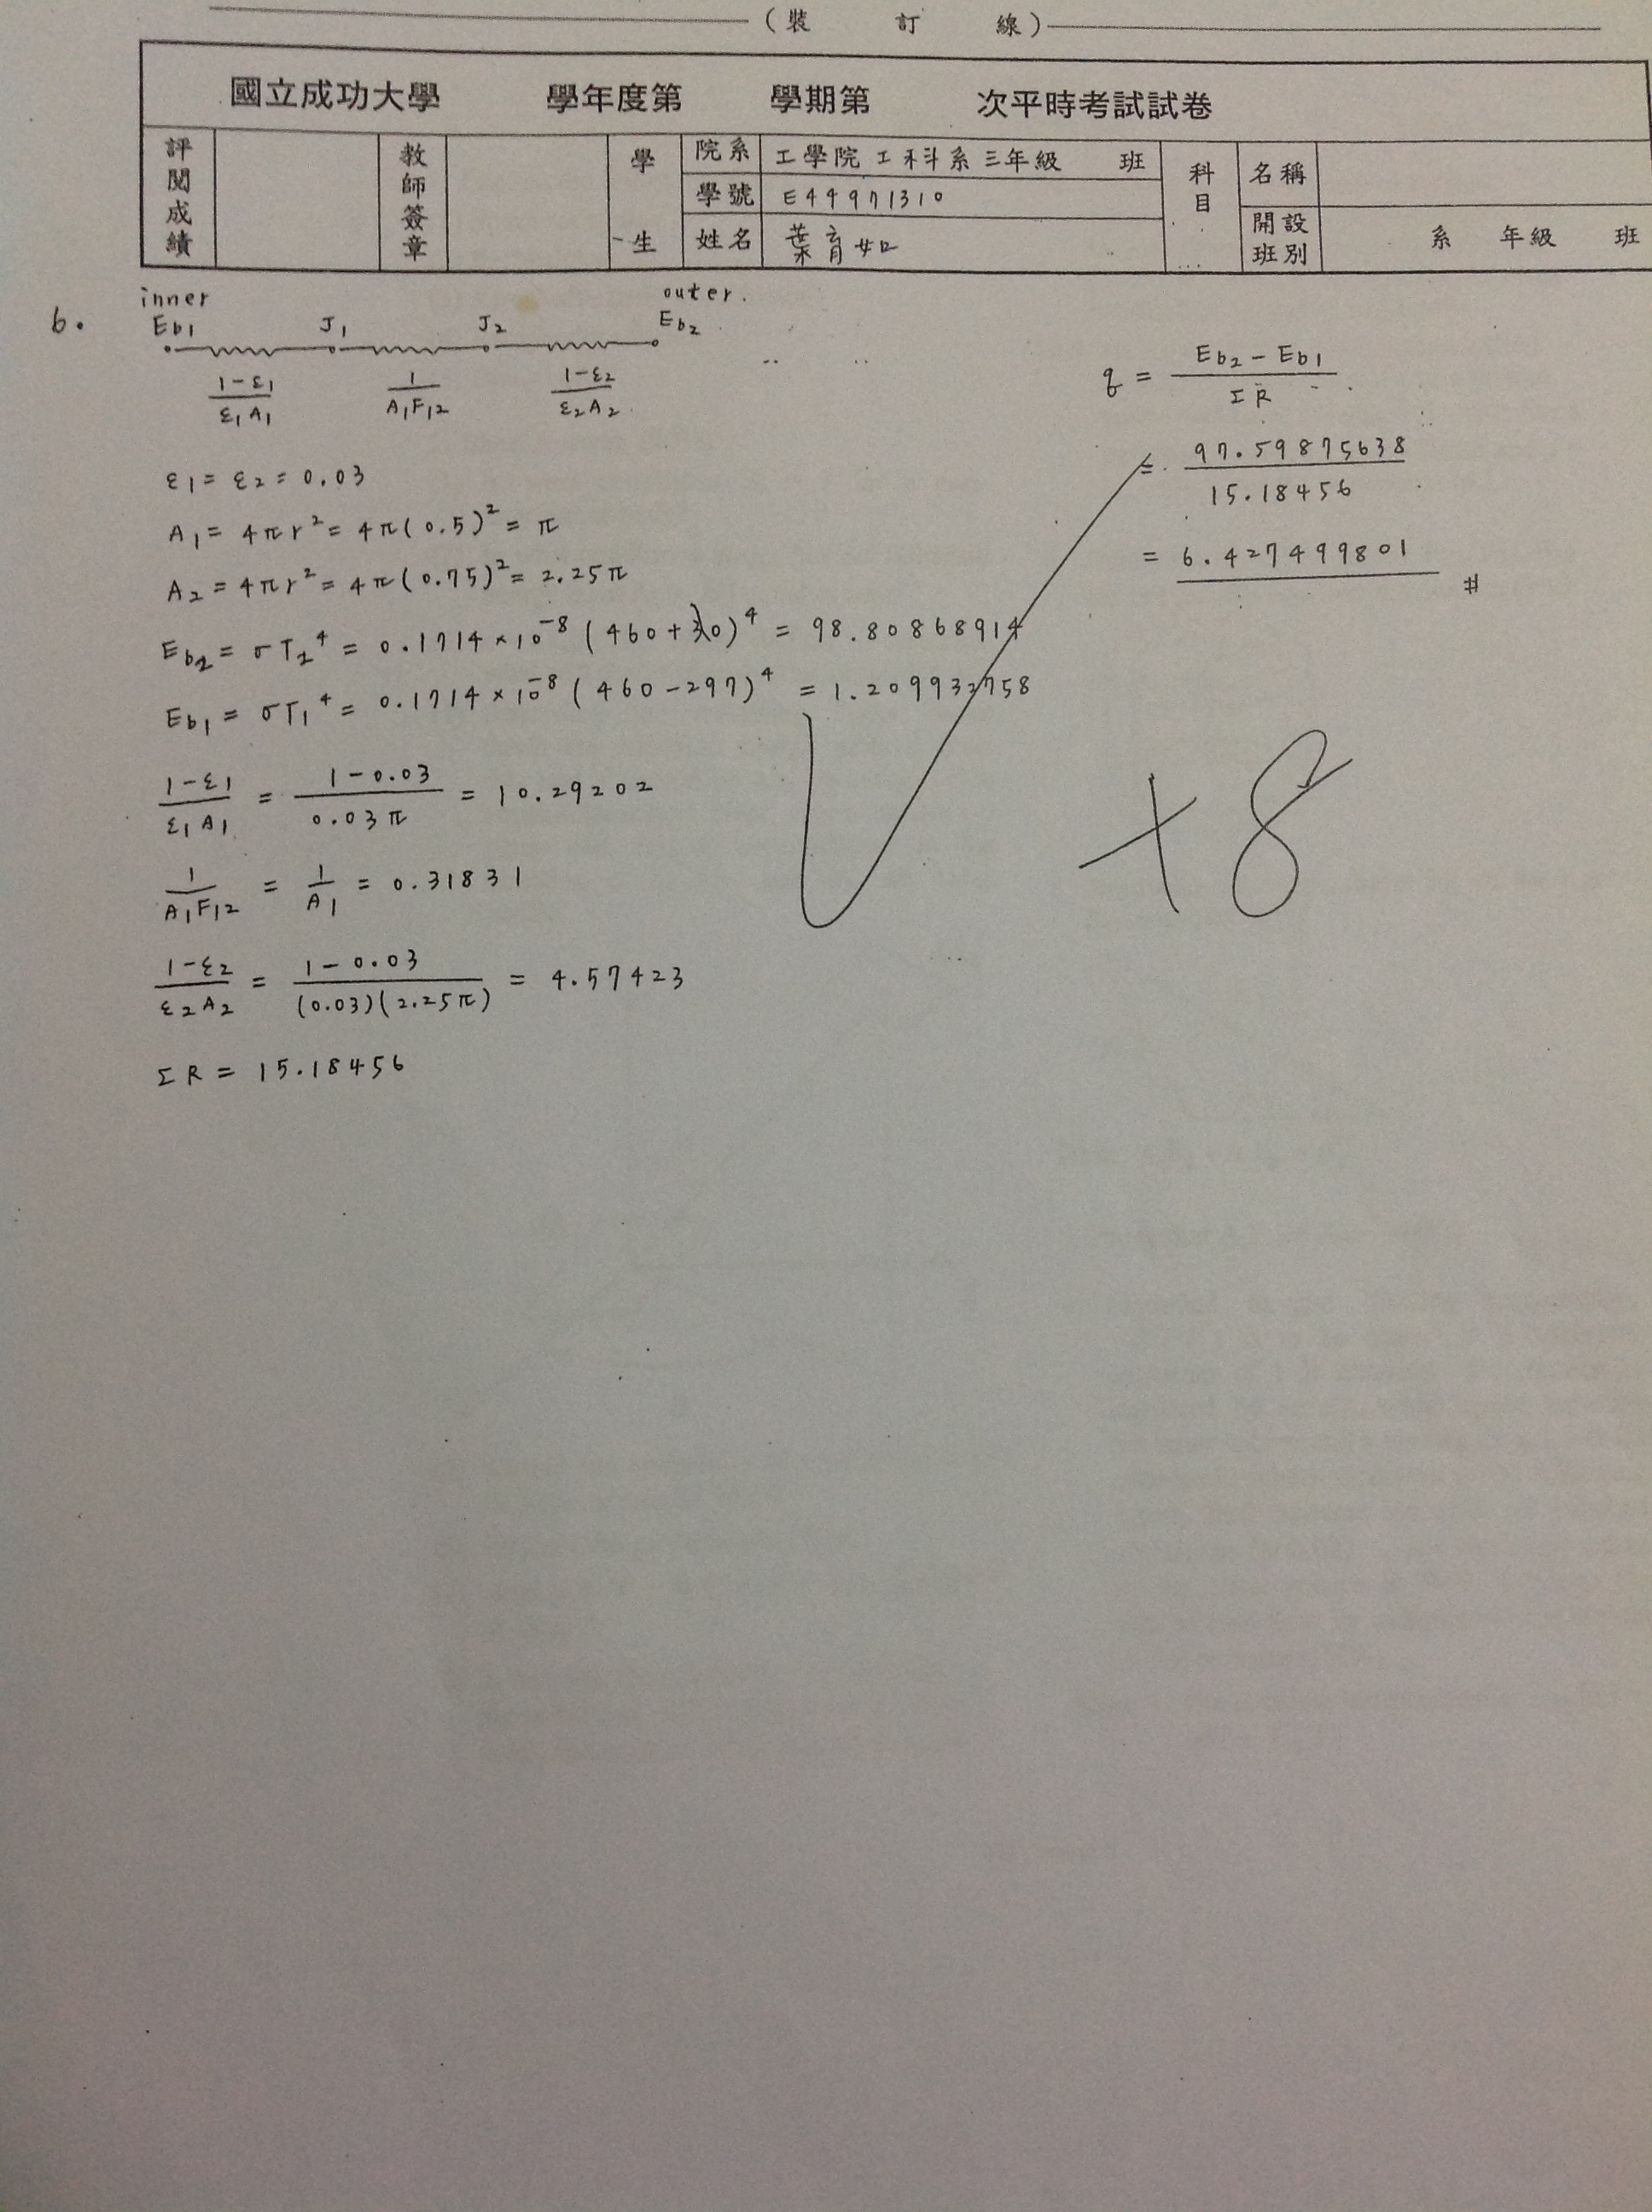 (裝 訂 線)
國立成功大學 學年度第 學期第 次平時考試試卷
評閱成績 教師簽章 學生 院系 工學院工科系三年級 班 科目 名稱
學號 E44971310
姓名 葉育如 開設班別 系 年級 班
inner outer.
6. Eb1 J1 J2 Eb2
(1-ε1)/(ε1A1) 1/(A1F12) (1-ε2)/(ε2A2)
ε1 = ε2 = 0.03
A1 = 4πr² = 4π(0.5)² = π
A2 = 4πr² = 4π(0.75)² = 2.25π
Eb2 = σT2⁴ = 0.1714×10⁻⁸ (460+30)⁴ = 98.80868914
Eb1 = σT1⁴ = 0.1714×10⁻⁸ (460-297)⁴ = 1.209932758
(1-ε1)/(ε1A1) = (1-0.03)/(0.03π) = 10.29202
1/(A1F12) = 1/A1 = 0.31831
(1-ε2)/(ε2A2) = (1-0.03)/((0.03)(2.25π)) = 4.57423
ΣR = 15.18456
q = (Eb2-Eb1)/(ΣR)
= 97.59875638/15.18456
= 6.427499801 #
+8